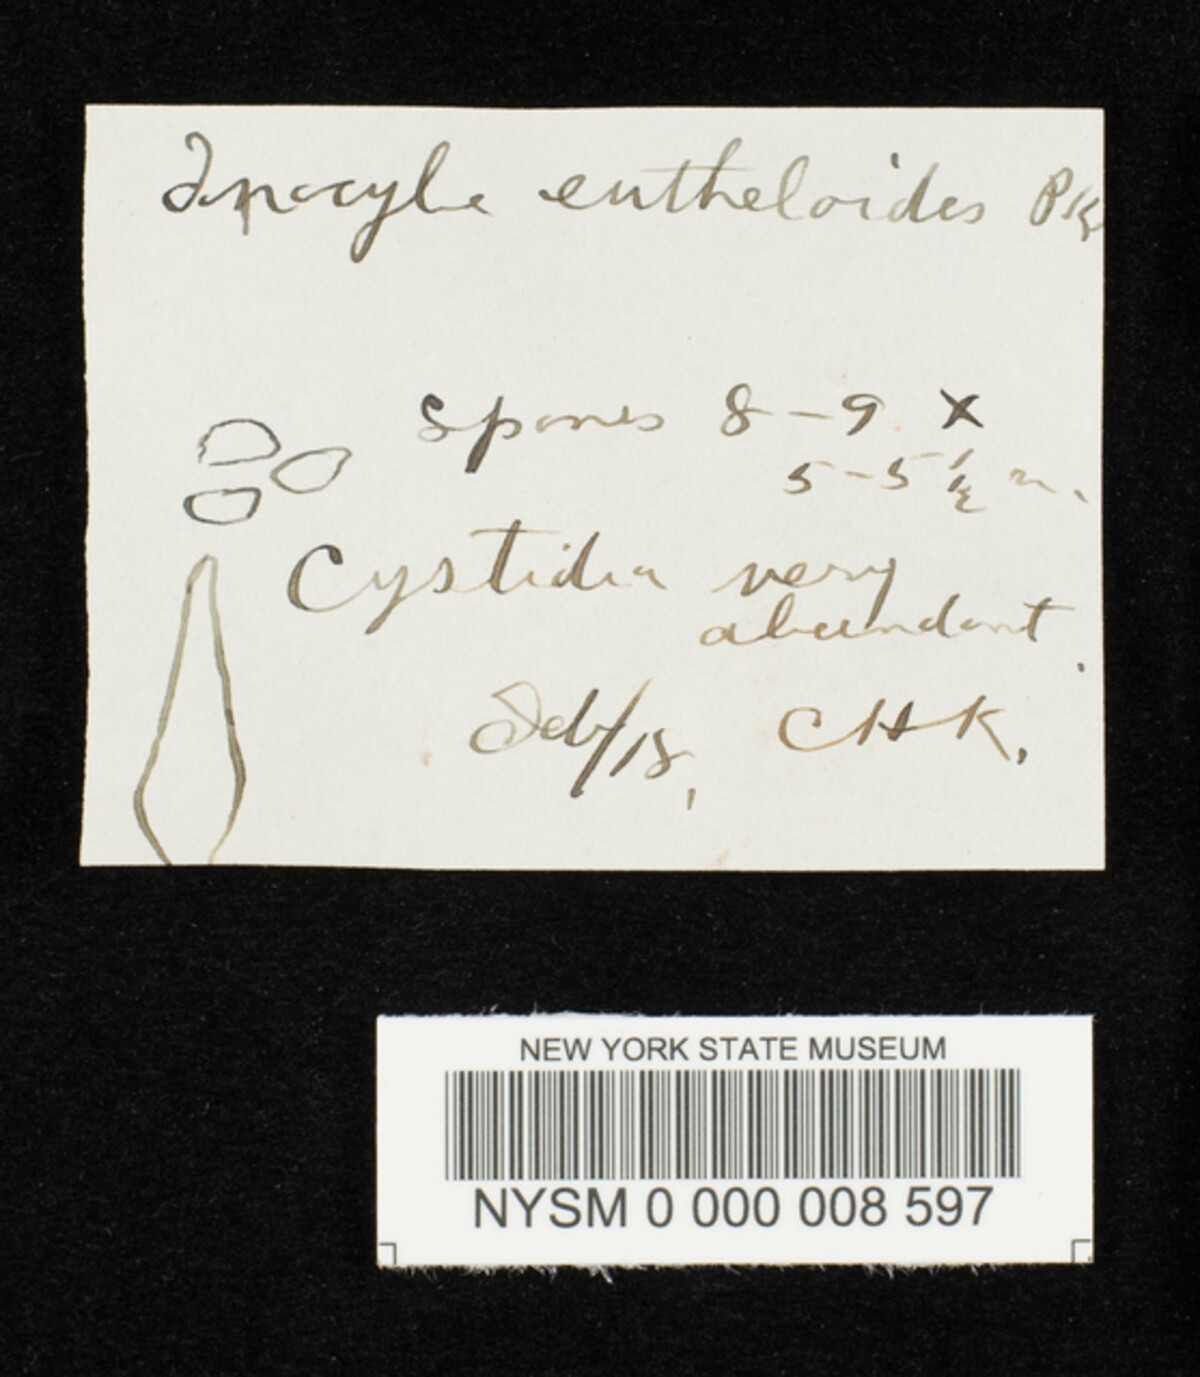 Inocybe eutheloides Pk
Spores 8-9 X
5-5 ½ μ.
Cystidia very
abundant.
Feb/18, CHK.
NEW YORK STATE MUSEUM
NYSM 0 000 008 597